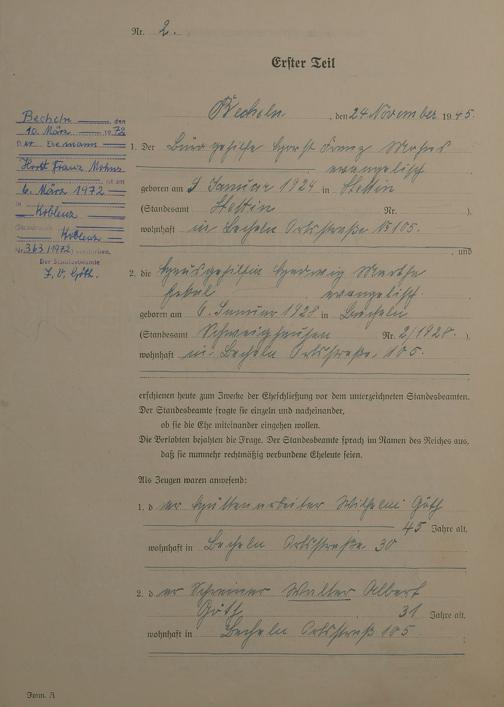 Nr. 2.
Erster Teil
Becheln, den 24 November 1945.
Becheln, den
10. März 1972
Der Ehemann
Horst Franz Mohns
ist am
6. März 1972
in
Koblenz
Koblenz
Nr. 363/1972) verstorben.
Der Standesbeamte
J. V. Göth.
1. Der Bürogehilfe Horst Franz Mohns
evangelisch
geboren am 9 Januar 1924 in Stettin
(Standesamt Stettin Nr. ).
wohnhaft in Becheln Ortsstraße N 105.
, und
2. die Hausgehilfin Hedwig Marthe
evangelisch
geboren am 6. Januar 1928 in Becheln
(Standesamt Schweighausen Nr. 2/1928. ).
wohnhaft in Becheln Ortsstraße 105.
erschienen heute zum Zwecke der Eheschließung vor dem unterzeichneten Standesbeamten.
Der Standesbeamte fragte sie einzeln und nacheinander,
ob sie die Ehe miteinander eingehen wollen.
Die Verlobten bejahten die Frage. Der Standesbeamte sprach im Namen des Reiches aus,
daß sie nunmehr rechtmäßig verbundene Eheleute seien.
Als Zeugen waren anwesend:
1. der Hüttenarbeiter Wilhelm Göth
45 Jahre alt,
wohnhaft in Becheln Ortsstraße 30
2. der Schreiner Walter Albert
Göth 31 Jahre alt,
wohnhaft in Becheln Ortsstraß 105.
Form. A